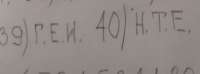 39) Г.Е.И. 40) Н.Т.Е.